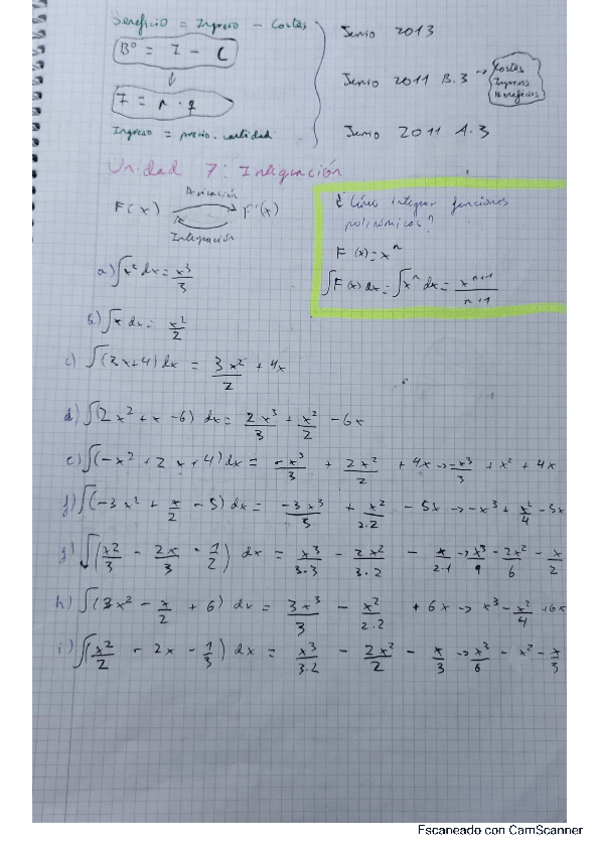 Beneficio = Ingreso - Costes
Bº = I - C
↓
I = n · q
Ingreso = precio · cantidad
Junio 2013
Junio 2011 B.3 → Costes
Ingreso
Beneficios
Junio 2011 A.3
Unidad 7: Integración
Derivación
F(x) F'(x)
Integración
¿Cómo integrar funciones
polinómicas?
F(x) = x^n
∫F(x) dx = ∫x^n dx = x^(n+1)/(n+1)
a) ∫x² dx = x³/3
b) ∫x dx = x²/2
c) ∫(3x+4) dx = 3x²/2 + 4x
d) ∫(2x² + x - 6) dx = 2x³/3 + x²/2 - 6x
e) ∫(-x² + 2x + 4) dx = -x³/3 + 2x²/2 + 4x → -x³/3 + x² + 4x
f) ∫(-3x² + x/2 - 5) dx = -3x³/3 + x²/2.2 - 5x → -x³ + x²/4 - 5x
g) ∫(x²/3 - 2x/3 - 1/2) dx = x³/3.3 - 2x²/3.2 - x/2.1 → x³/9 - 2x²/6 - x/2
h) ∫(3x² - x/2 + 6) dx = 3x³/3 - x²/2.2 + 6x → x³ - x²/4 + 6x
i) ∫(x²/2 - 2x - 1/3) dx = x³/3.2 - 2x²/2 - x/3 → x³/6 - x² - x/3
Escaneado con CamScanner